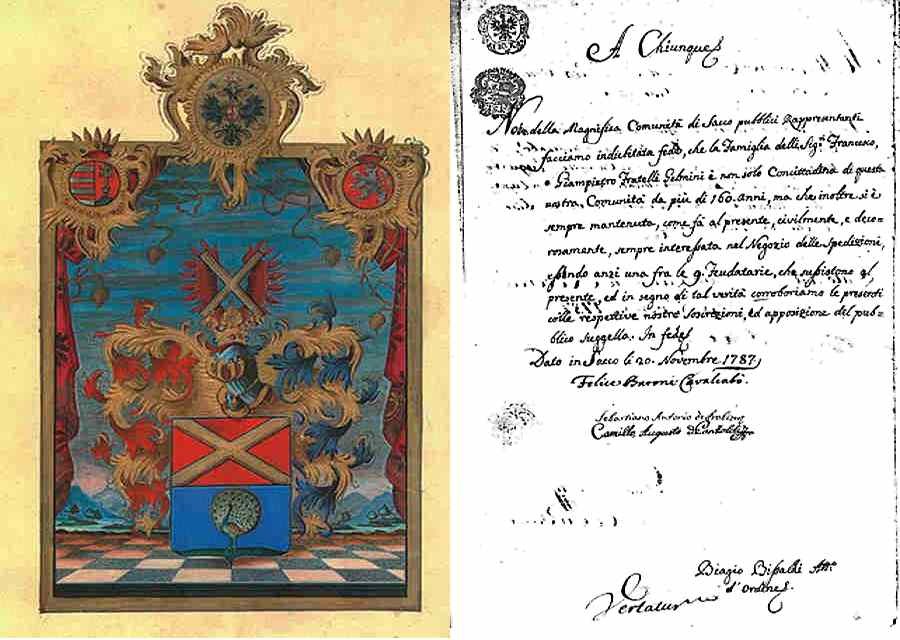 A Chiunque
Noi della Magnifica Comunità di Sacco pubblici Rappresentanti
facciamo indubitata fede, che la Famiglia delli Sigri Francesco,
Giampietro Fratelli Gelmini è non solo Concittadina di questa
nostra Comunità da più di 160. anni, ma che inoltre si è
sempre mantenuta, come fà al presente, civilmente, e deco=
rosamente, sempre interessata nel Negozio delle Spedizioni,
essendo anzi una fra le 9. Feudatarie, che sussistono al
presente, ed in segno di tal verità corroboriamo le presenti
colle respettive nostre Soscrizioni, ed apposizione del pub=
blico suggello. In fede
Dato in Sacco li 20. Novembre 1787,
Felice Baroni Cavalcabò.
Sebastiano Antonio de
Camillo Augusto de
Biagio
d'Ordine